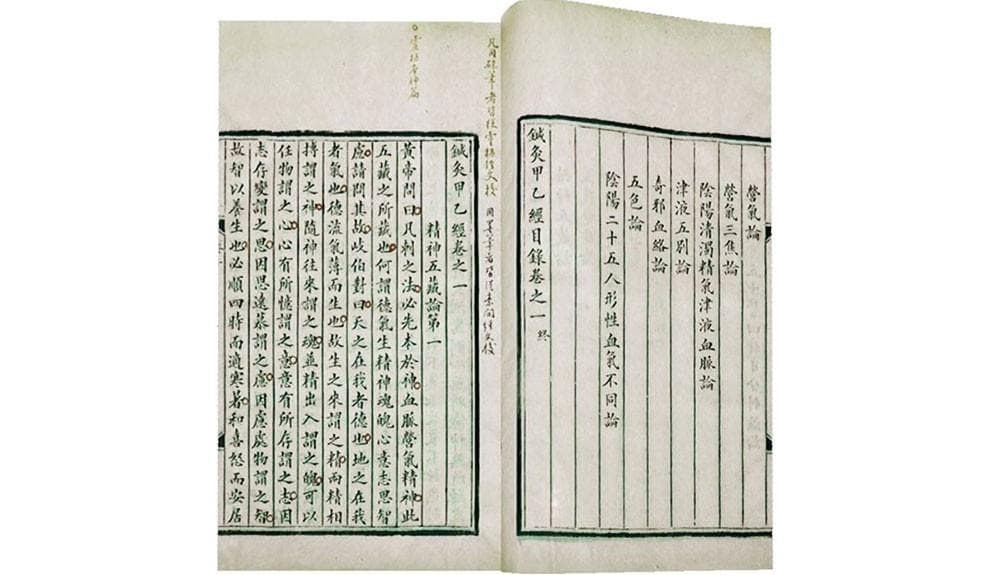 營氣論
營氣三焦論
陰陽清濁精氣津液血脈論
津液五別論
奇邪血絡論
五色論
陰陽二十五人形性血氣不同論
鍼灸甲乙經目錄卷之一 終
凡用硃筆者皆從靈樞經文校 用墨筆者皆從素問經文校
鍼灸甲乙經卷之一
精神五藏論第一
黃帝問曰凡刺之法必先本於神血脈營氣精神此
五藏之所藏也何謂德氣生精神魂魄心意志思智
慮請問其故岐伯對曰天之在我者德也地之在我
者氣也德流氣薄而生也故生之來謂之精兩精相
搏謂之神隨神往來謂之魂並精出入謂之魄可以
任物謂之心心有所憶謂之意意有所存謂之志因
志存變謂之思因思遠慕謂之慮因慮處物謂之智
故智以養生也必順四時而適寒暑和喜怒而安居
靈樞本神篇